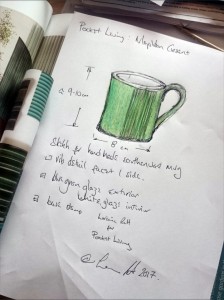 Pocket Living : Mapleton Crescent
c 9-10cm
8 cm
Sketch for handmade earthenware mug
w rib detail facet 1 side.
glaze exterior
white glaze interior
base stamp
for
Pocket Living
2017.